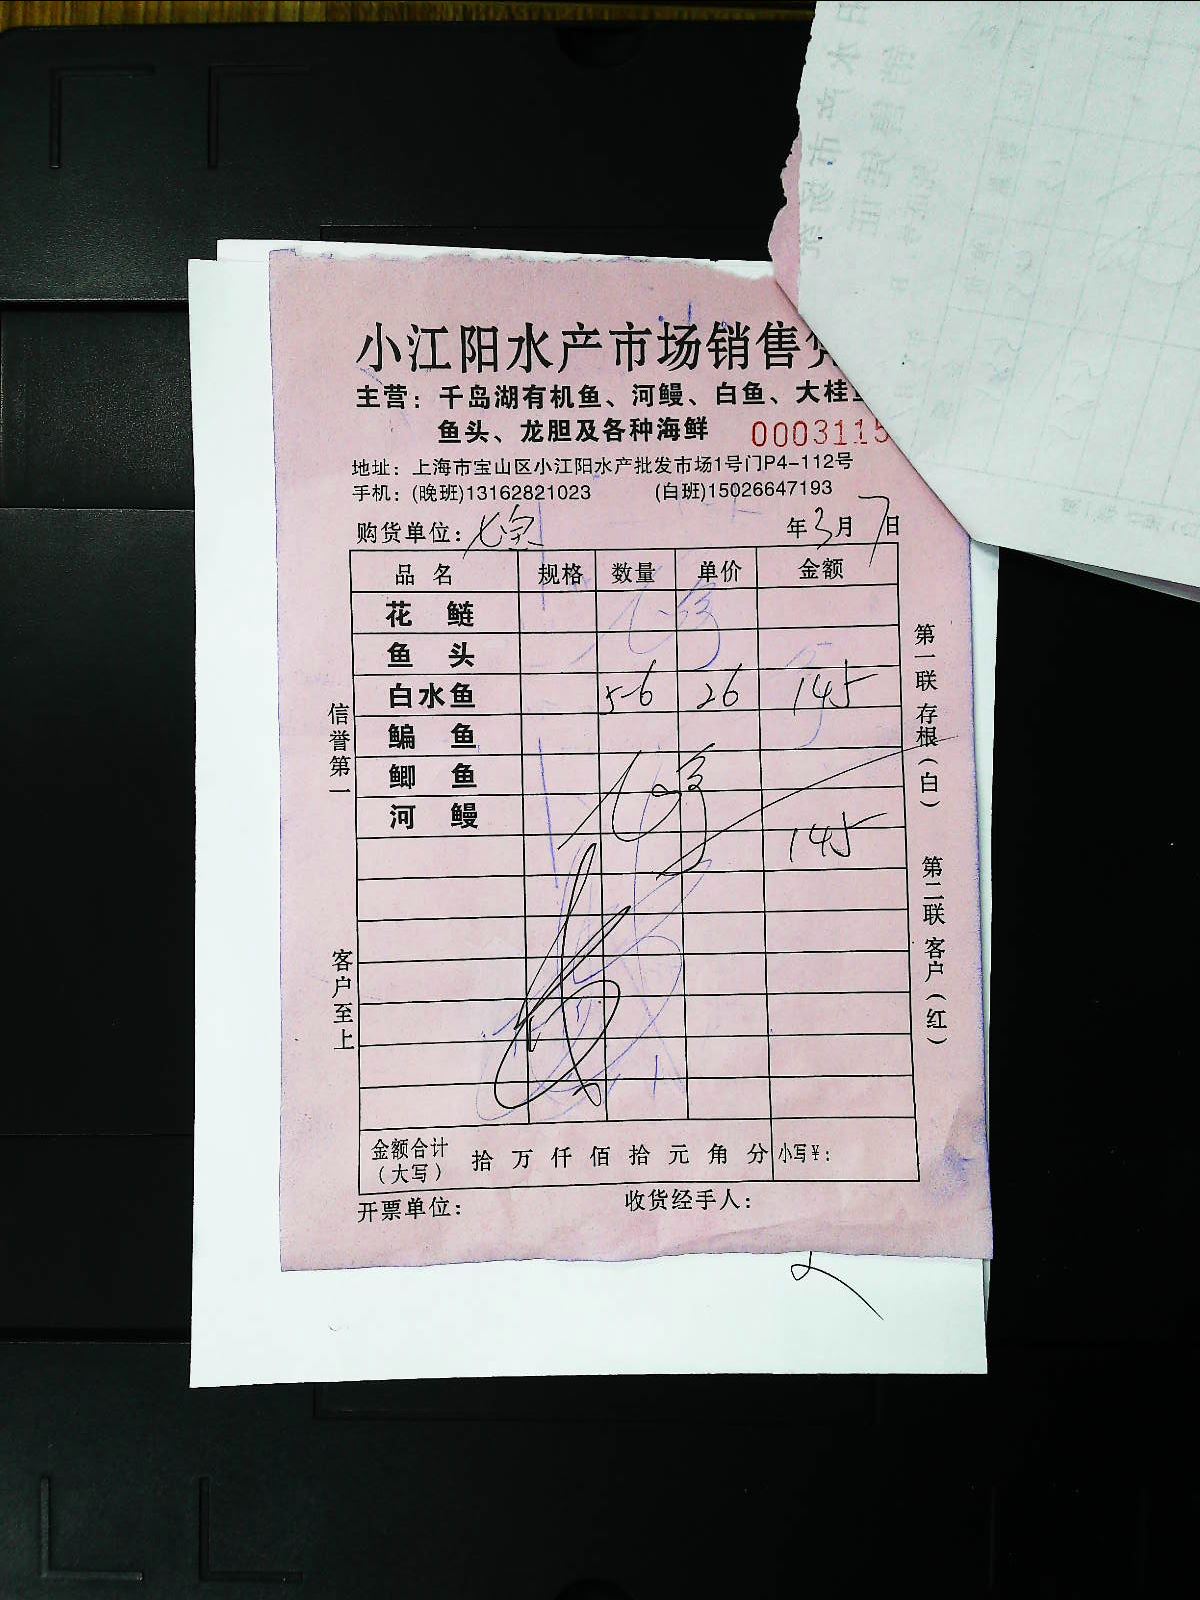 小江阳水产市场销售
主营：千岛湖有机鱼、河鳗、白鱼、大桂
鱼头、龙胆及各种海鲜 0003115
地址：上海市宝山区小江阳水产批发市场1号门P4-112号
手机：(晚班)13162821023 (白班)15026647193
购货单位：七宝 年3月7日
品名 规格 数量 单价 金额
花鲢
鱼头
白水鱼 5-6 26 145
鳊鱼
鲫鱼
河鳗
145
金额合计（大写） 拾 万 仟 佰 拾 元 角 分 小写¥：
开票单位： 收货经手人：
信誉第一
客户至上
第一联 存根（白）
第二联 客户（红）